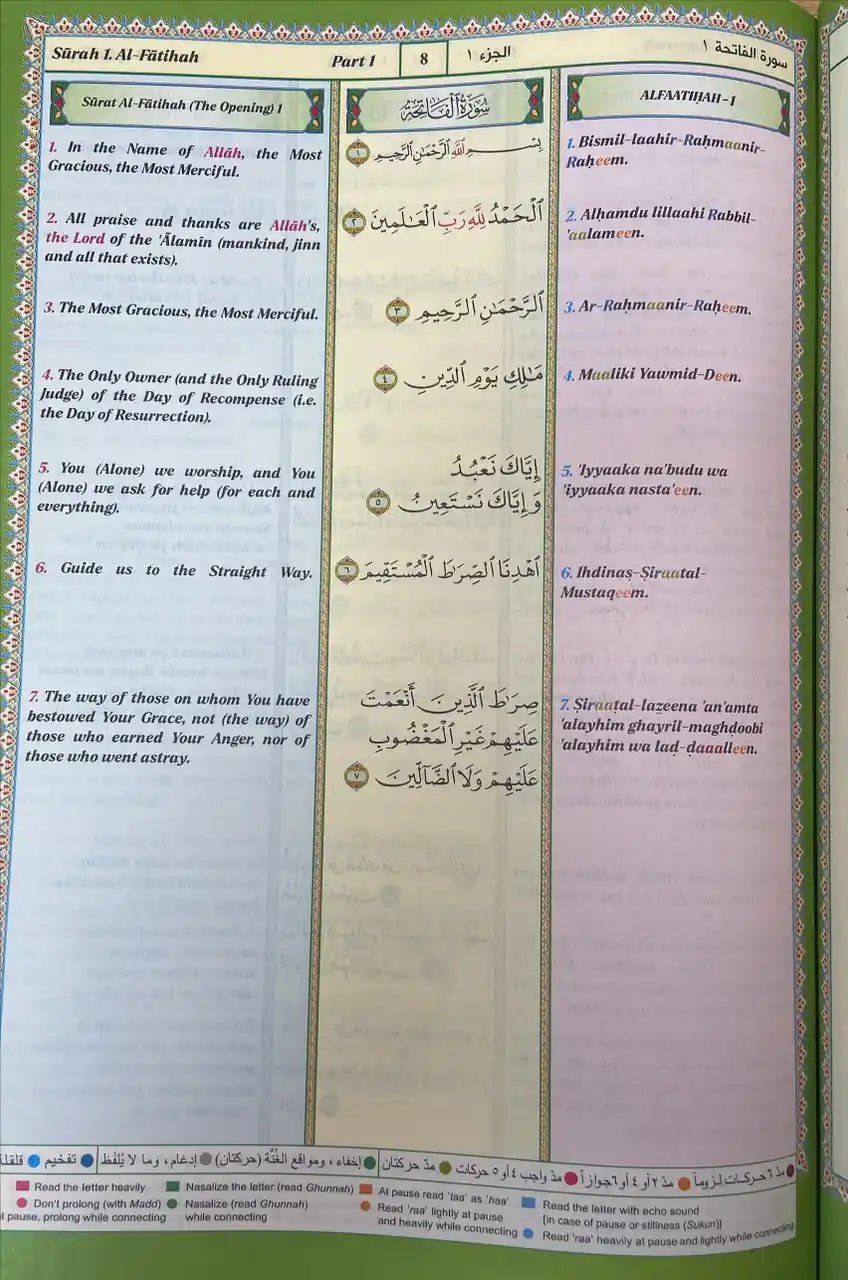 Sūrah 1. Al-Fātihah
Part 1
8
الجزء ١
سورة الفاتحة ١
Sūrat Al-Fātihah (The Opening) 1
1. In the Name of Allāh, the Most
Gracious, the Most Merciful.
2. All praise and thanks are Allāh's,
the Lord of the 'Ālamīn (mankind, jinn
and all that exists).
3. The Most Gracious, the Most Merciful.
4. The Only Owner (and the Only Ruling
Judge) of the Day of Recompense (i.e.
the Day of Resurrection).
5. You (Alone) we worship, and You
(Alone) we ask for help (for each and
everything).
6. Guide us to the Straight Way.
7. The way of those on whom You have
bestowed Your Grace, not (the way) of
those who earned Your Anger, nor of
those who went astray.
سُورَةُ ٱلْفَاتِحَةِ
بِسْمِ ٱللَّهِ ٱلرَّحْمَٰنِ ٱلرَّحِيمِ ١
ٱلْحَمْدُ لِلَّهِ رَبِّ ٱلْعَٰلَمِينَ ٢
ٱلرَّحْمَٰنِ ٱلرَّحِيمِ ٣
مَٰلِكِ يَوْمِ ٱلدِّينِ ٤
إِيَّاكَ نَعْبُدُ
وَإِيَّاكَ نَسْتَعِينُ ٥
ٱهْدِنَا ٱلصِّرَٰطَ ٱلْمُسْتَقِيمَ ٦
صِرَٰطَ ٱلَّذِينَ أَنْعَمْتَ
عَلَيْهِمْ غَيْرِ ٱلْمَغْضُوبِ
عَلَيْهِمْ وَلَا ٱلضَّآلِّينَ ٧
ALFAATIḤAH - 1
1. Bismil-laahir-Raḥmaanir-
Raḥeem.
2. Alḥamdu lillaahi Rabbil-
'aalameen.
3. Ar-Raḥmaanir-Raḥeem.
4. Maaliki Yawmid-Deen.
5. 'Iyyaaka na'budu wa
'iyyaaka nasta'een.
6. Ihdinaṣ-Ṣiraatal-
Mustaqeem.
7. Ṣiraatal-lazeena 'an'amta
'alayhim ghayril-maghḍoobi
'alayhim wa laḍ-ḍaaalleen.
مدّ ٦ حركات لزوماً مدّ ٢ أو ٤ أو ٦ جوازاً مدّ واجب ٤ أو ٥ حركات مدّ حركتان إخفاء، ومواقع الغُنَّة (حركتان) إدغام، وما لا يُلفَظ تفخيم قلقلة
Read the letter heavily
Don't prolong (with Madd)
pause, prolong while connecting
Nasalize the letter (read Ghunnah)
Nasalize (read Ghunnah)
while connecting
At pause read 'taa' as 'haa'
Read 'raa' lightly at pause
and heavily while connecting
Read the letter with echo sound
[in case of pause or stillness (Sukun)]
Read 'raa' heavily at pause and lightly while connecting